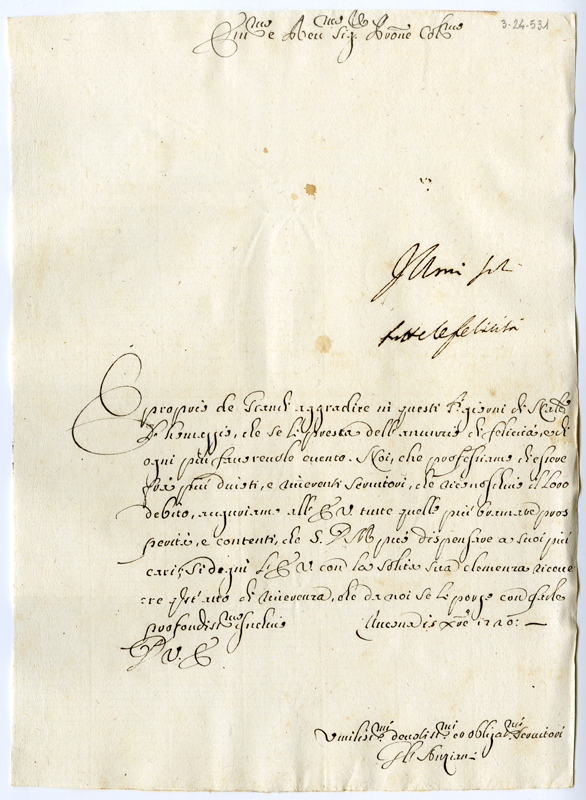 3-24-531
Em:mo e Rev:mo Sig: Prone Col:mo
tutte le felicità
È proprio de Grandi aggradire in questi SS. giorni di Natale
l'homaggio, che se li presta dell'annunzio di felicità, e di
ogni più favorevole evento. Noi, che professiamo d'essere
frà più divoti, e riverenti Servitori, che riconoschino il loro
debito, auguriamo all'E V tutte quelle più bramate pros
perità, e contenti, che S. D. M. può dispensare a suoi più
cari; Si degni l'E V con la solita sua clemenza riceve
re quest'atto di riverenza, che da noi se li porge con farle
profondiss:mo inchino Ancona 15 Xbre 1720:
D V. E
Umiliss:mi devotiss:mi et obligat:mi Servitori
Gli Anziani